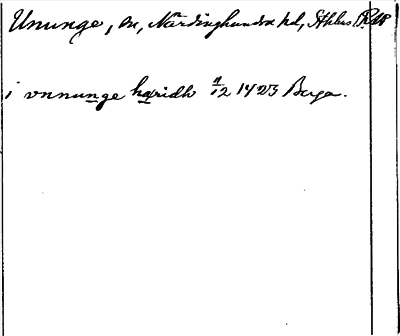 Ununge, sn, Närdinghundra hd, Sthlms l.
i vnnunge haridh 4/12 1423 Berga.